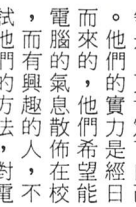 。他們的實力是經日
而來的，他們希望能
電腦的氣息散佈在校
，而有興趣的人，不
試他們的方法，對電